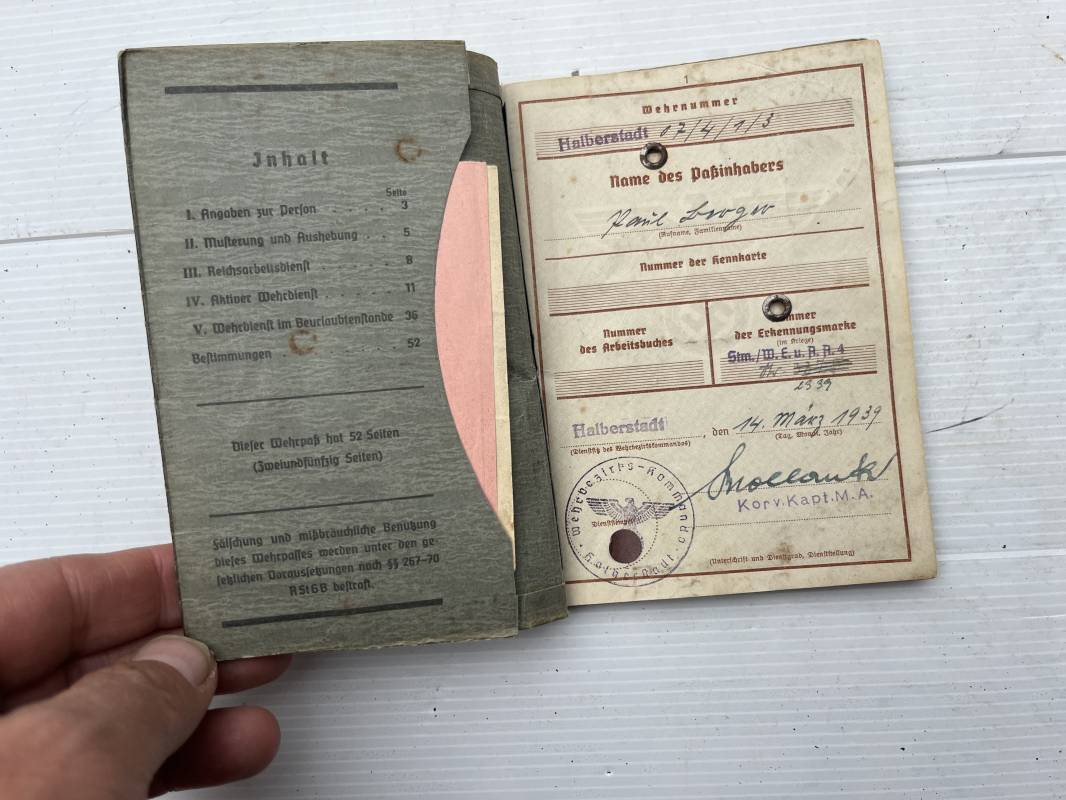 Inhalt
Seite
I. Angaben zur Person . . . . . 3
II. Musterung und Aushebung . . 5
III. Reichsarbeitsdienst . . . . . 8
IV. Aktiver Wehrdienst . . . . . 11
V. Wehrdienst im Beurlaubtenstande 36
Bestimmungen . . . . . 52
Dieser Wehrpaß hat 52 Seiten
(Zweiundfünfzig Seiten)
Fälschung und mißbräuchliche Benutzung
dieses Wehrpasses werden unter den ge-
setzlichen Voraussetzungen nach §§ 267–70
RStGB bestraft.
1
Wehrnummer
Halberstadt 07/4/1/3
Name des Paßinhabers
Paul
(Rufname, Familienname)
Nummer der Kennkarte
Nummer
des Arbeitsbuches
der Erkennungsmarke
(im Kriege)
Stm./W.E.u.A.A.4
Nr.
2339
Halberstadt, den 14. März 1939
(Dienstsitz des Wehrbezirkskommandos)
(Tag, Monat, Jahr)
Korv.Kapt.M.A.
Wehrbezirks-Kommando
Halberstadt
Dienststempel
(Unterschrift und Dienstgrad, Dienststellung)